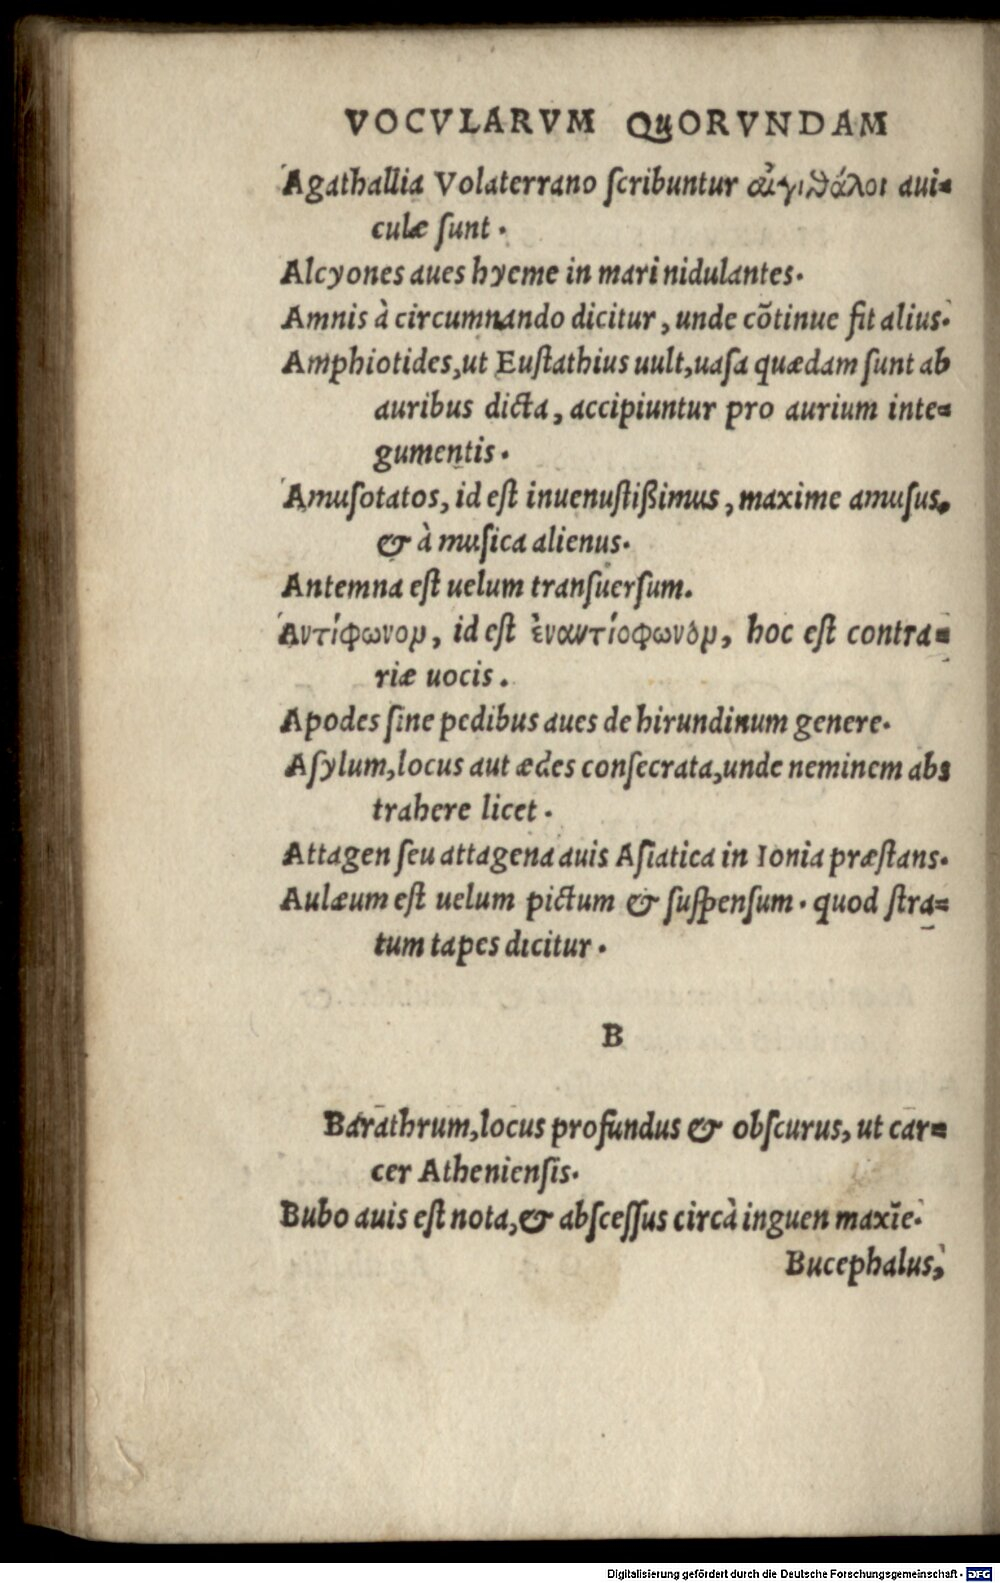 VOCVLARVM QuORVNDAM
Agathallia Volaterrano ſcribuntur αἰγιθάλοι aui=
culæ ſunt.
Alcyones aues hyeme in mari nidulantes.
Amnis à circumnando dicitur, unde cõtinue fit alius.
Amphiotides, ut Euſtathius uult, uaſa quædam ſunt ab
auribus dicta, accipiuntur pro aurium inte=
gumentis.
Amuſotatos, id eſt inuenuſtißimus, maxime amuſus,
& à muſica alienus.
Antemna eſt uelum tranſuerſum.
Αντίφωνον, id eſt ἐναντίοφωνὸν, hoc eſt contra=
riæ uocis.
Apodes ſine pedibus aues de hirundinum genere.
Aſylum, locus aut ædes conſecrata, unde neminem abs
trahere licet.
Attagen ſeu attagena auis Aſiatica in Ionia præſtans.
Aulæum eſt uelum pictum & ſuſpenſum. quod ſtra=
tum tapes dicitur.
B
Barathrum, locus profundus & obſcurus, ut car=
cer Athenienſis.
Bubo auis eſt nota, & abſceſſus circà inguen maxīe.
Bucephalus,
Digitalisierung gefördert durch die Deutsche Forschungsgemeinschaft - DFG